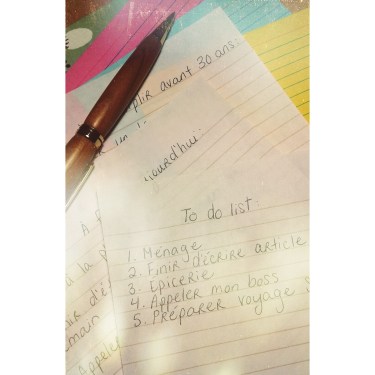 plir avant 30 ans:
jourd'hui:
To do list:
1. Ménage
2. Finir d'écrire article
3. Epicerie
4. Appeler mon boss
5. Préparer voyage
à la
main
Appeler